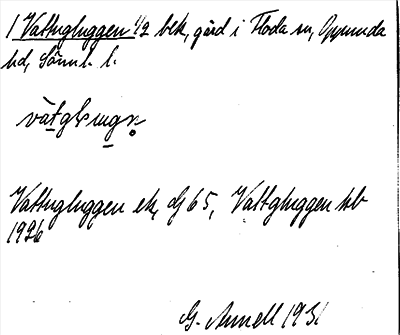 1 Vattugluggen 1/2 bek, gård i Floda sn, Oppunda
hd, Södm. l.
Vattugluggen ek, dJ 65, Vattgluggen hb
1926
G. Annell 1931